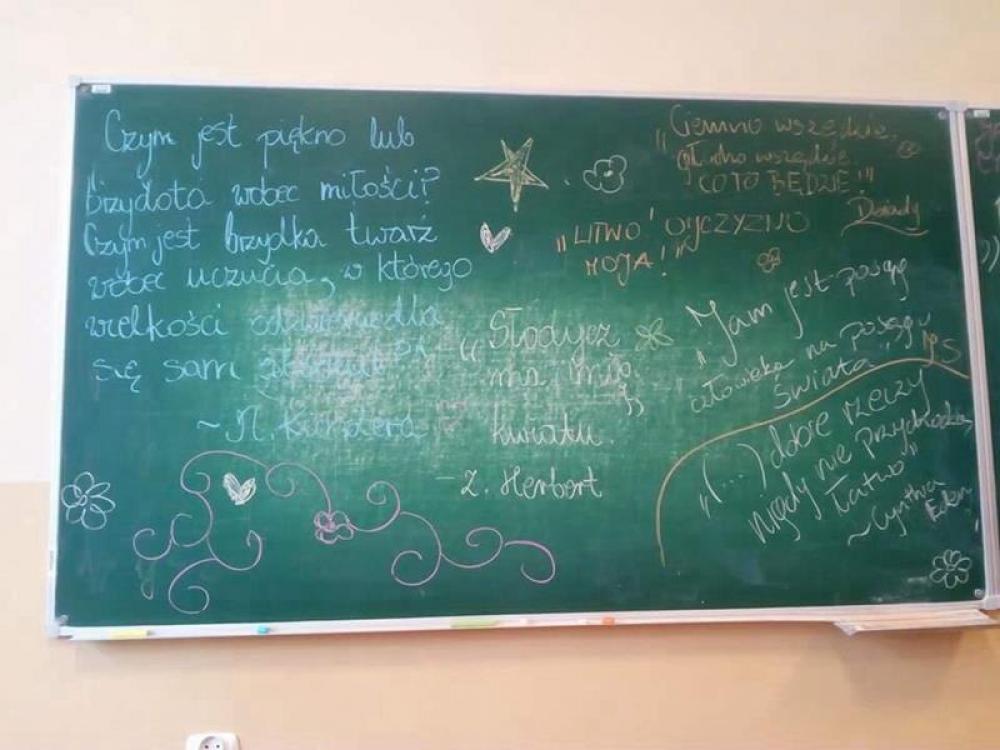 Czym jest piękno lub
brzydota wobec miłości?
Czym jest brzydka twarz
wobec uczucia, w którego
wielkości odzwierciedla
się sam absolut"
~ M. Kundera
„Ciemno wszędzie,
głucho wszędzie
CO TO BĘDZIE!"
Dziady
„LITWO! OJCZYZNO
MOJA!"
„Słodycz
ma imię
kwiatu."
- Z. Herbert
„Jam jest posąg
człowieka na posągu
świata" JS
„(...) dobre rzeczy
nigdy nie przychodzą
łatwo"
~ Cynthia
Eden